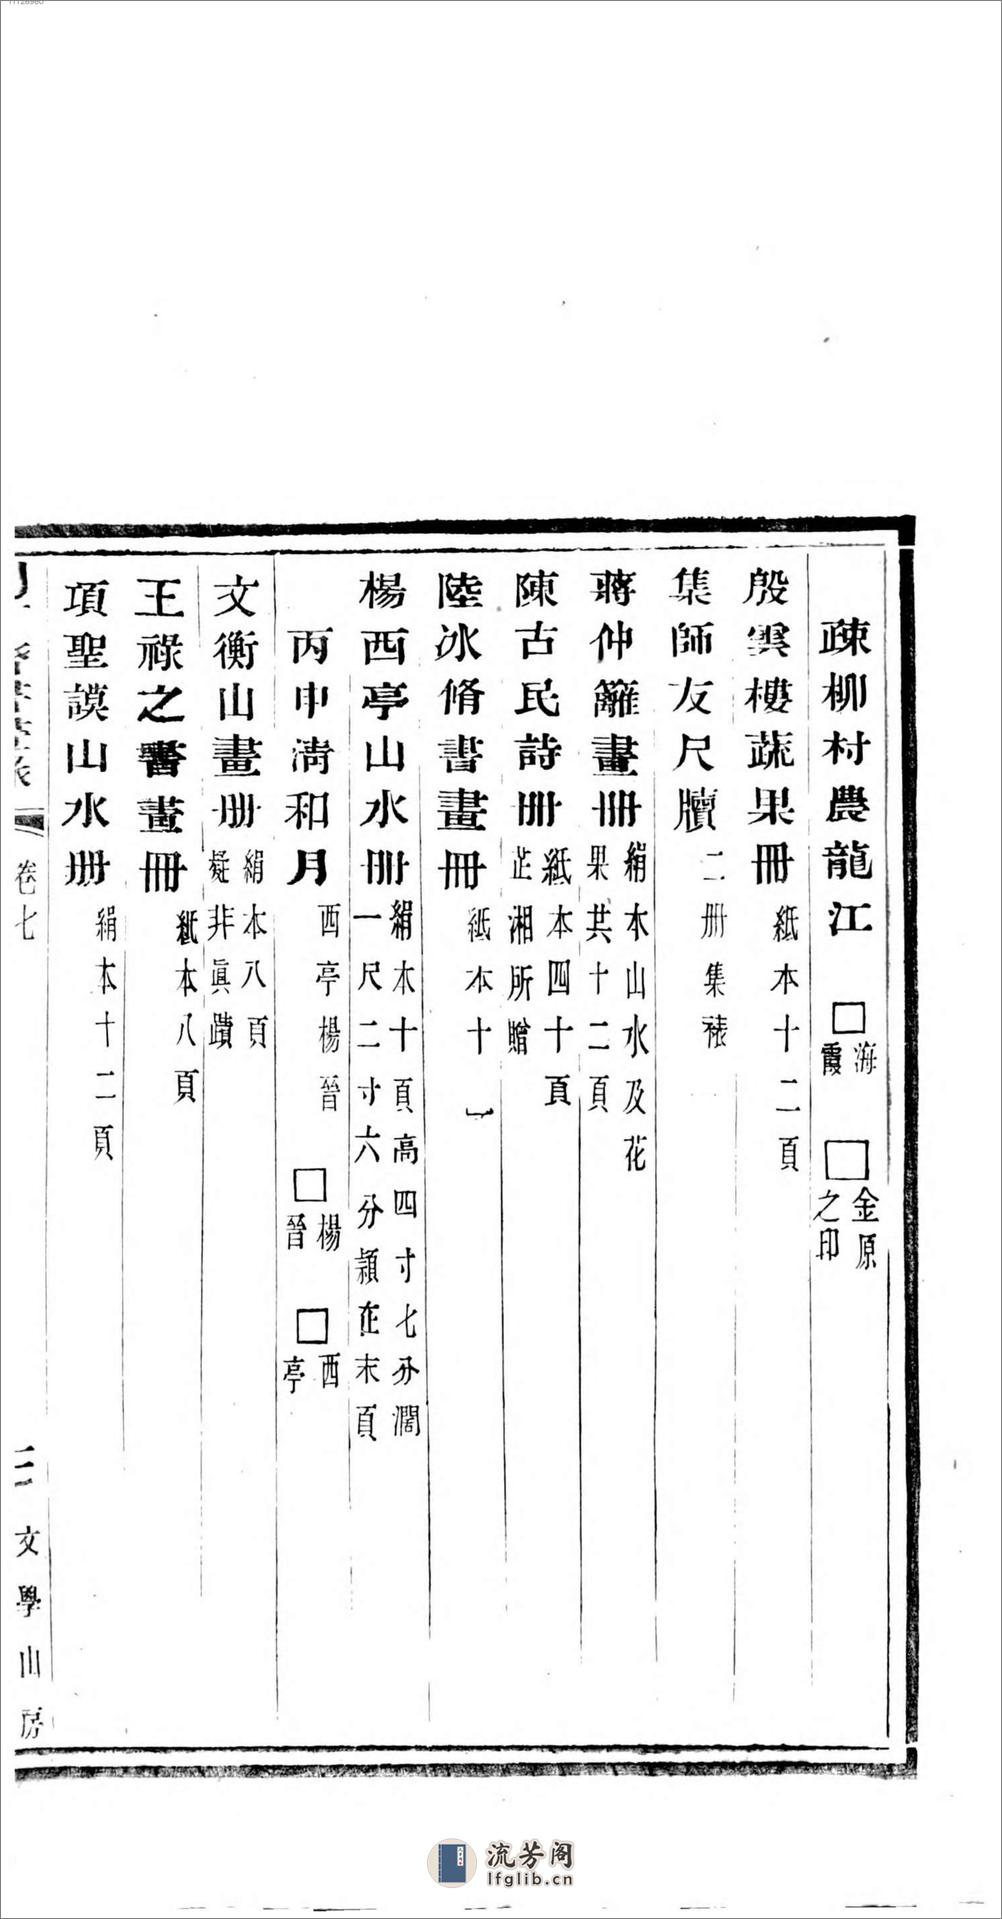 疎柳村農龍江 □海霞 □金原之印
殷雲樓蔬果冊紙本十二頁
集師友尺牘二册集裱
蔣仲籬畫冊絹本山水及花果共十二頁
陳古民詩册紙本四十頁芷湘所贈
陸冰脩書畫冊紙本十
楊西亭山水册絹本十頁高四寸七分濶一尺二寸六分頴在末頁
丙申清和月西亭楊晉 □楊晉 □西亭
文衡山畫册絹本八頁疑非眞蹟
王祿之書畫冊紙本八頁
項聖謨山水册絹本十二頁
卷七
三
文學山房
流芳阁
lfglib.cn
11128980